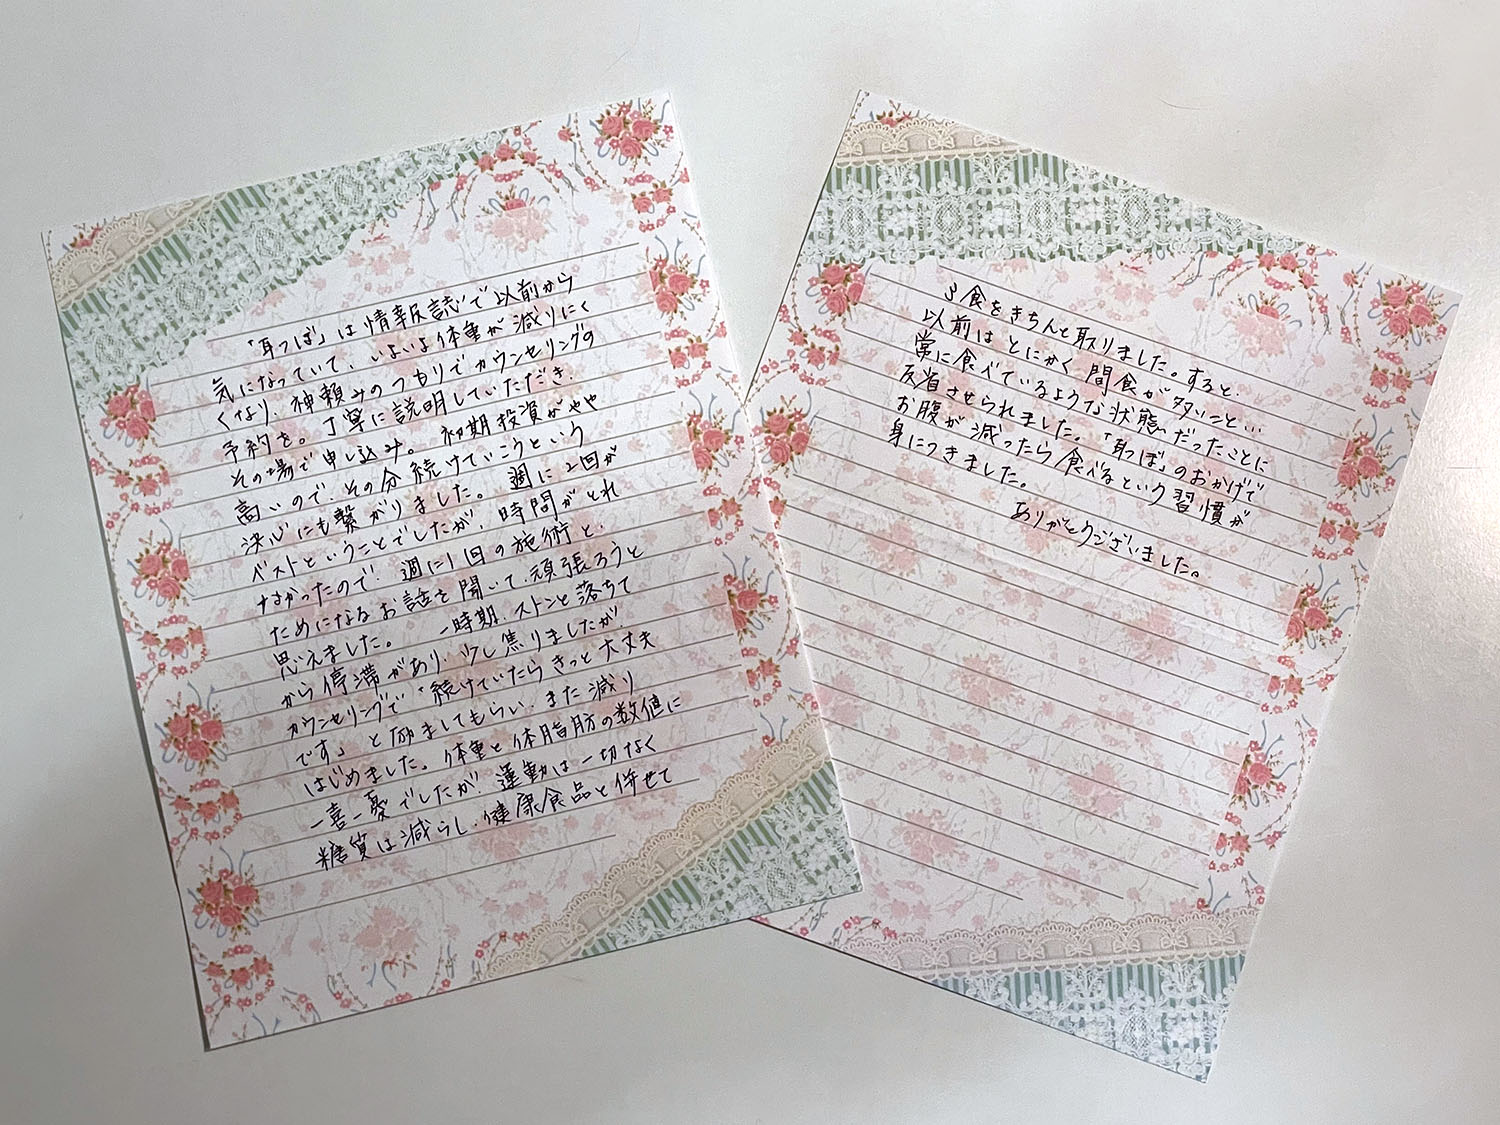 「耳つぼ」は情報誌で以前から
気になっていて、いよいよ体重が減りにく
くなり、神頼みのつもりでカウンセリングの
予約を。丁寧に説明していただき、
その場で申し込み。初期投資がやや
高いので、その分続けていこうという
決心にも繋がりました。週に2回が
ベストということでしたが、時間がとれ
なかったので、週に1回の施術と、
ためになるお話を聞いて、頑張ろうと
思えました。一時期、ストンと落ちて
から停滞があり、少し焦りましたが、
カウンセリングで「続けていたらきっと大丈夫
です」と励ましてもらい、また減り
はじめました。体重と体脂肪の数値に
一喜一憂でしたが、運動は一切なく
糖質は減らし、健康食品と併せて
3食をきちんと取りました。すると、
以前はとにかく間食が多いこと…
常に食べているような状態だったことに
反省させられました。「耳つぼ」のおかげで
お腹が減ったら食べるという習慣が
身につきました。
ありがとうございました。